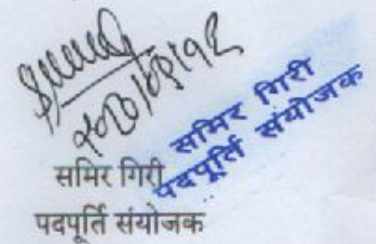 समिर गिरी
पदपूर्ति संयोजक
समिर गिरी
पदपूर्ति संयोजक